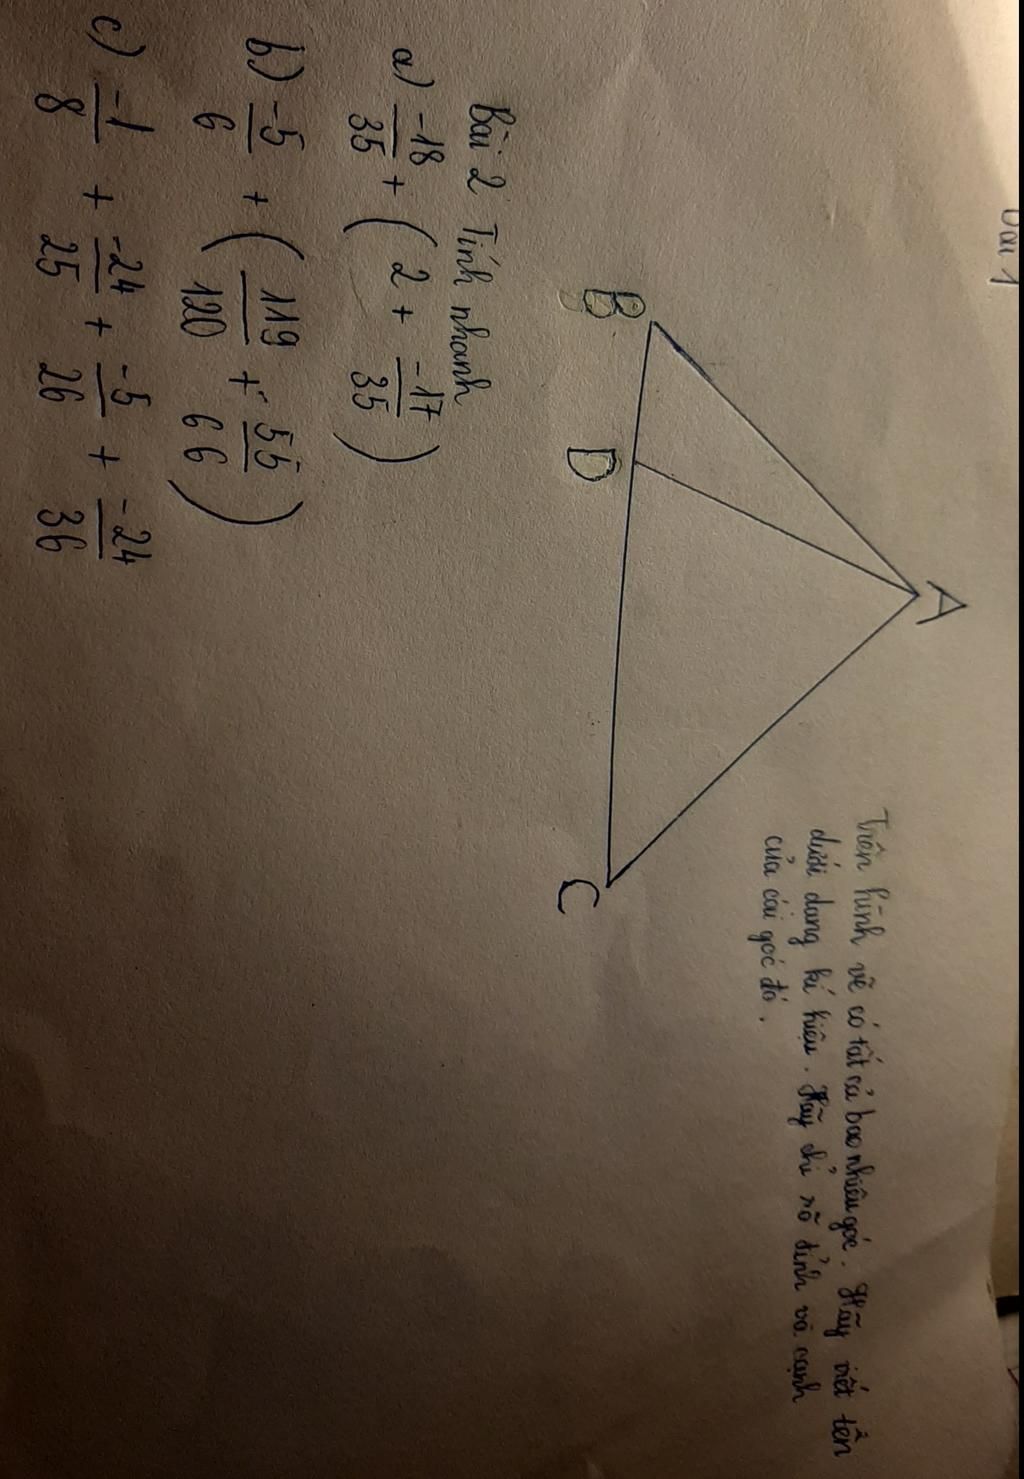 Bài 1
A
B
D
C
Trên hình vẽ có tất cả bao nhiêu góc. Hãy viết tên
dưới dạng kí hiệu. Hãy chỉ rõ đỉnh và cạnh
của cái góc đó.
Bài 2 Tính nhanh
a) -18/35 + ( 2 + -17/35 )
b) -5/6 + ( 119/120 + 55/66 )
c) -1/8 + -24/25 + -5/26 + -24/36